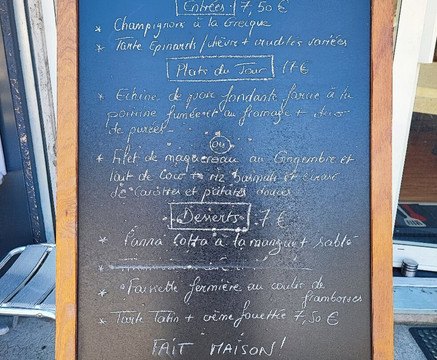 Entrées : 7,50 €
* Champignons à la Grecque
* Tarte Epinards / chèvre + crudités variées
Plats du Jour 17 €
* Echine de porc fondante farcie à la
poitrine fumée et au fromage + duo
de purées
Ou
* Filet de maquereau au Gingembre et
lait de Coco + riz basmati et écrasé
de Carottes et patates douces
Desserts : 7 €
* Panna Cotta à la mangue + sablé
*
* Faisselle fermière au coulis de
framboises
* Tarte Tatin + crème fouettée 7,50 €
FAIT MAISON !